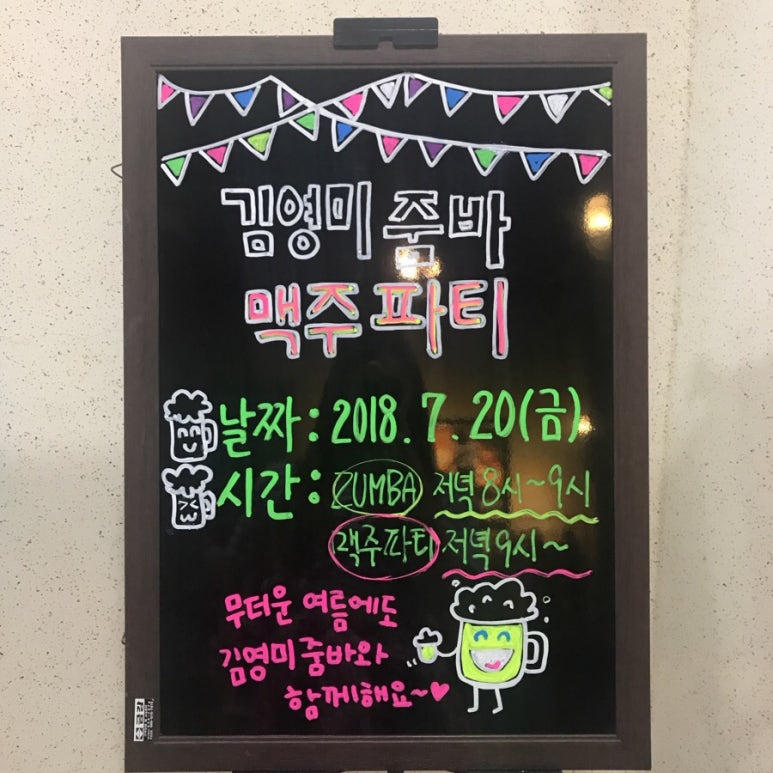 김영미 줌바
맥주 파티
날짜 : 2018. 7. 20 (금)
시간 : ZUMBA 저녁 8시~9시
맥주파티 저녁 9시~
무더운 여름에도
김영미 줌바와
함께해요~♥